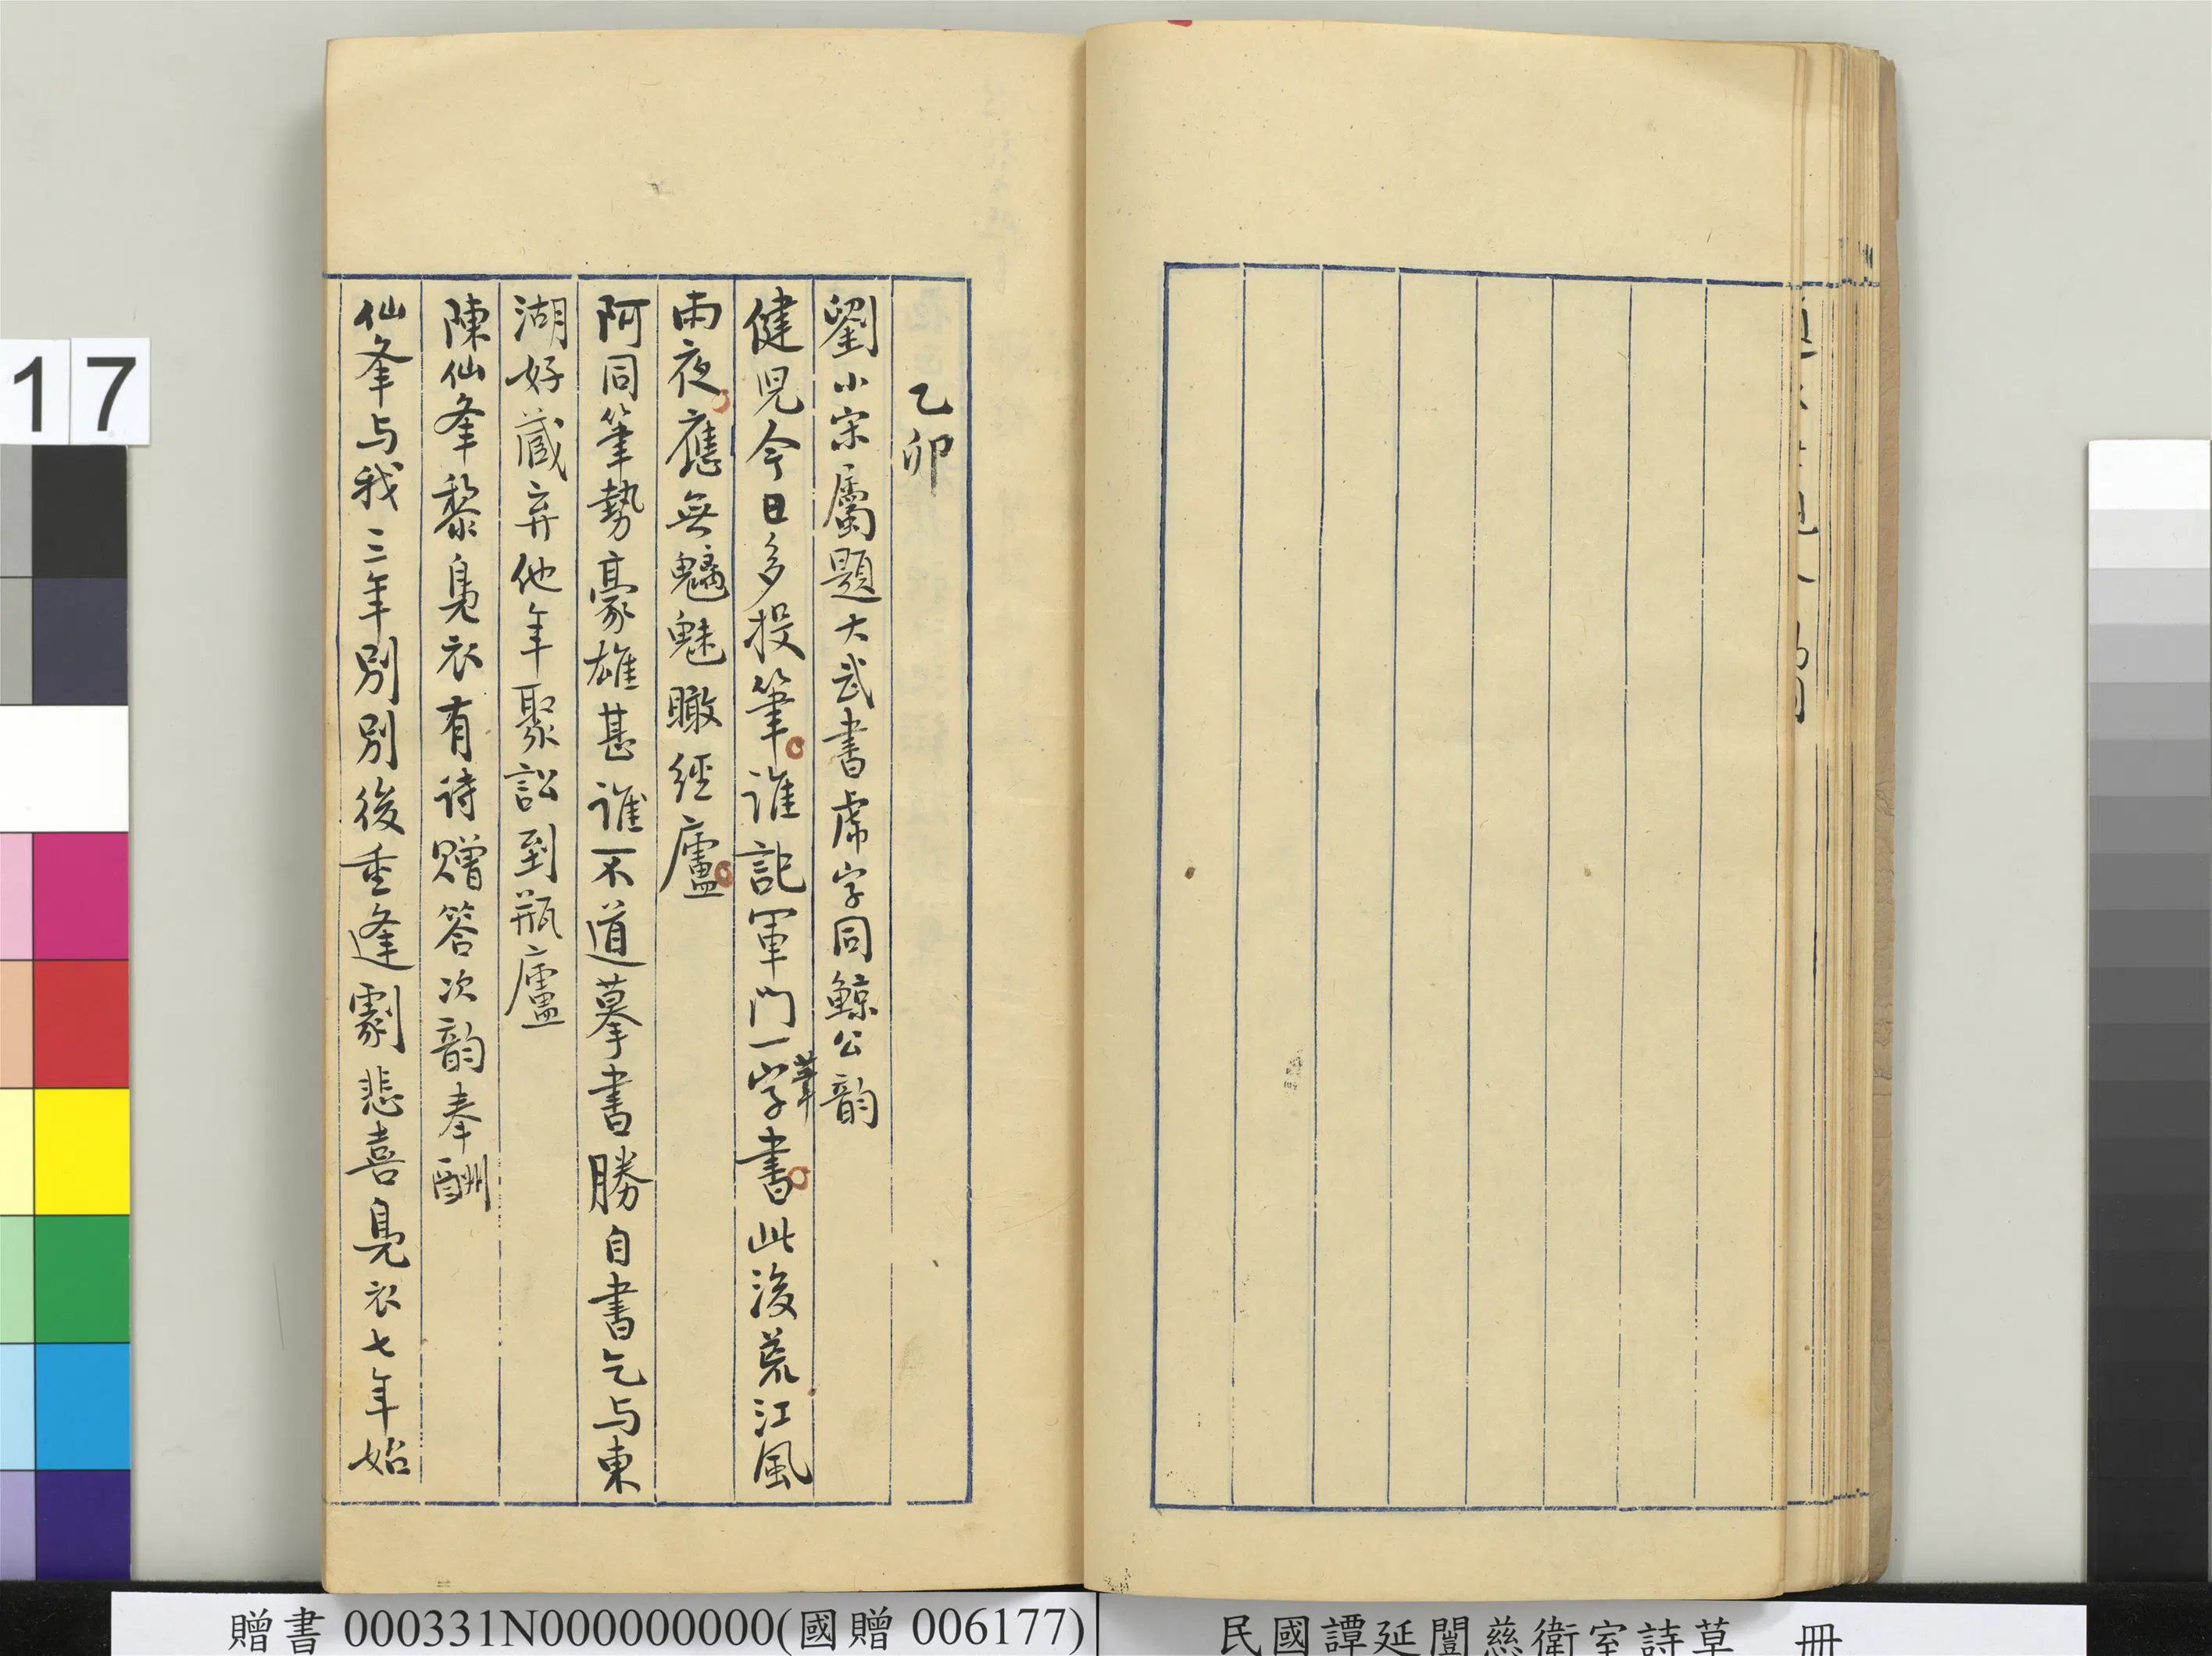 乙卯
劉小宋屬題大武書虎字同鯨公韵
健児今日多投筆誰記軍門一字書此後荒江風
筆
雨夜應無魑魅瞰經廬
阿同筆勢豪雄甚誰不道摹書勝自書乞与東
湖好蔵弆他年聚訟到瓶廬
陳仙夆黎鳧衣有诗贈答次韵奉酬
仙夆与我三年別別後重逢劇悲喜鳧衣七年始
17
贈書 000331N000000000(國贈 006177)
民國譚延闓慈衛室詩草 冊